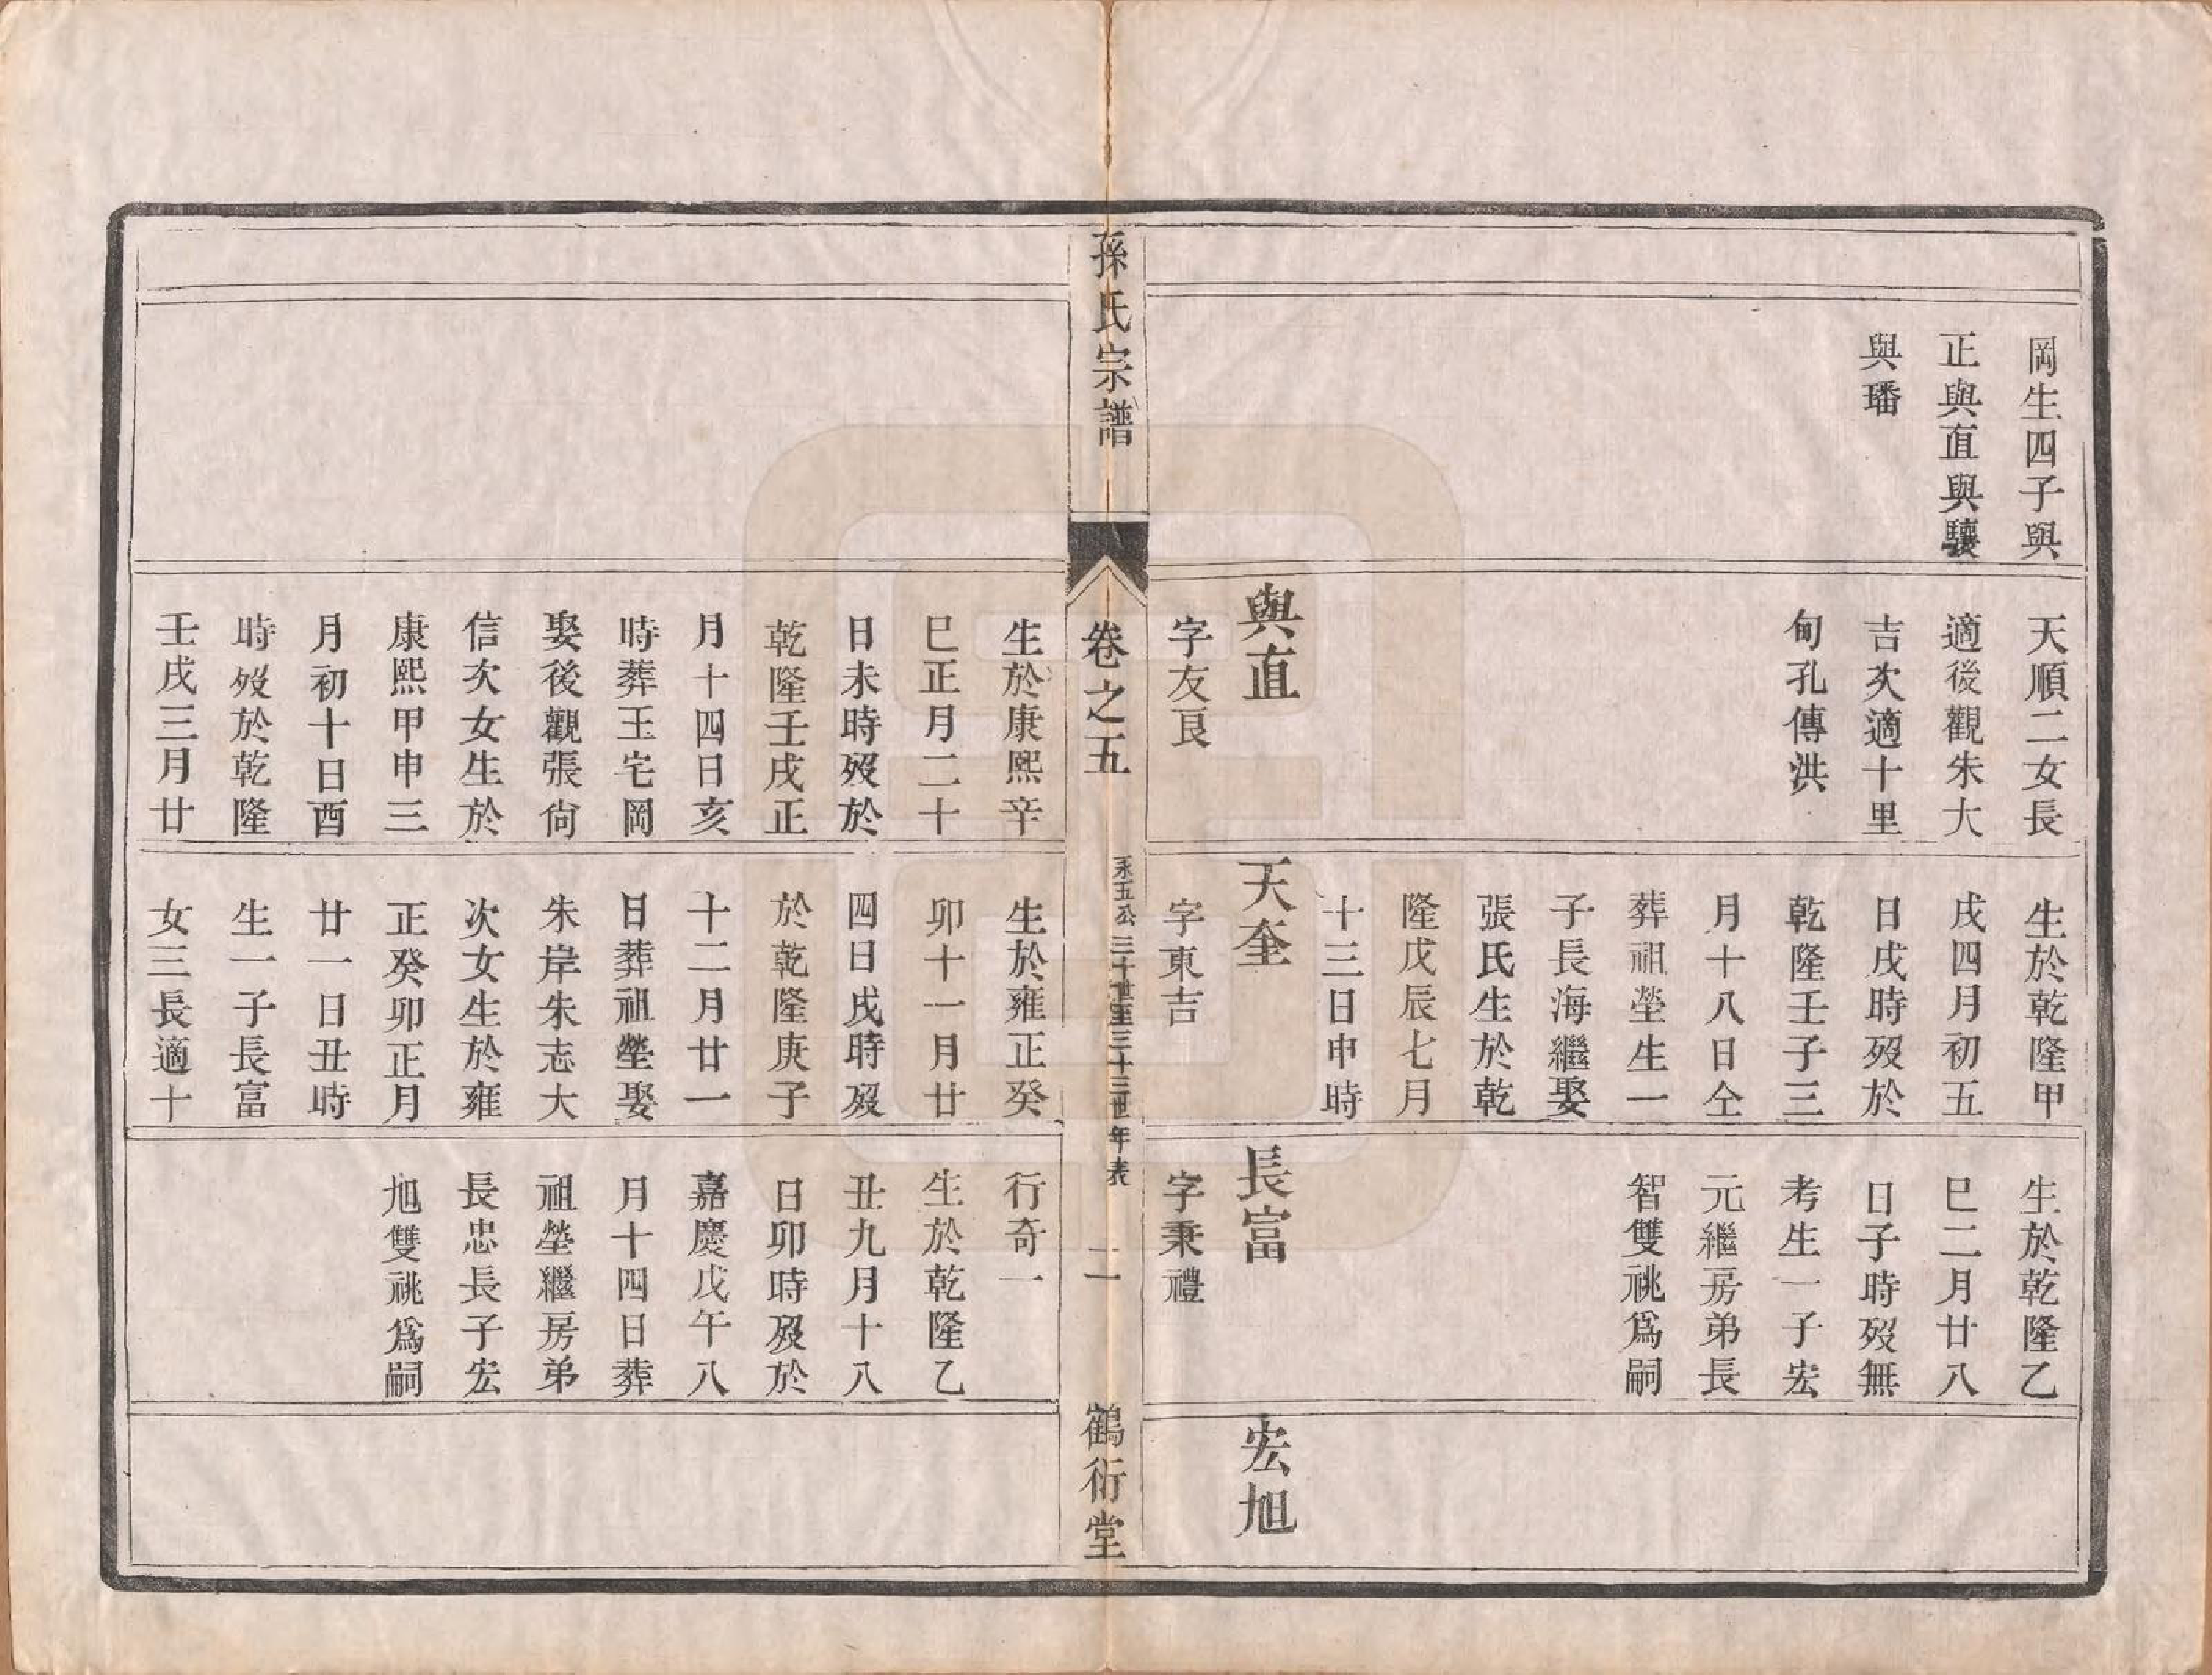 岡生四子與
正與直與驤
與璠
天順二女長
適後觀朱大
吉次適十里
甸孔傳洪
與直
字友良
生於乾隆甲
戌四月初五
日戌時歿於
乾隆壬子三
月十八日仝
葬祖塋生一
子長海繼娶
張氏生於乾
隆戊辰七月
十三日申時
天奎
字東吉
生於乾隆乙
巳二月廿八
日子時歿無
考生一子宏
元繼房弟長
智雙祧爲嗣
長富
字秉禮
宏旭
孫氏宗譜
卷之五
永五公三十世至三十三世年表
二
鶴衍堂
生於康熙辛
巳正月二十
日未時歿於
乾隆壬戌正
月十四日亥
時葬王宅岡
娶後觀張尙
信次女生於
康熙甲申三
月初十日酉
時歿於乾隆
壬戌三月廿
生於雍正癸
卯十一月廿
四日戌時歿
於乾隆庚子
十二月廿一
日葬祖塋娶
朱岸朱志大
次女生於雍
正癸卯正月
廿一日丑時
生一子長富
女三長適十
行奇一
生於乾隆乙
丑九月十八
日卯時歿於
嘉慶戊午八
月十四日葬
祖塋繼房弟
長忠長子宏
旭雙祧爲嗣